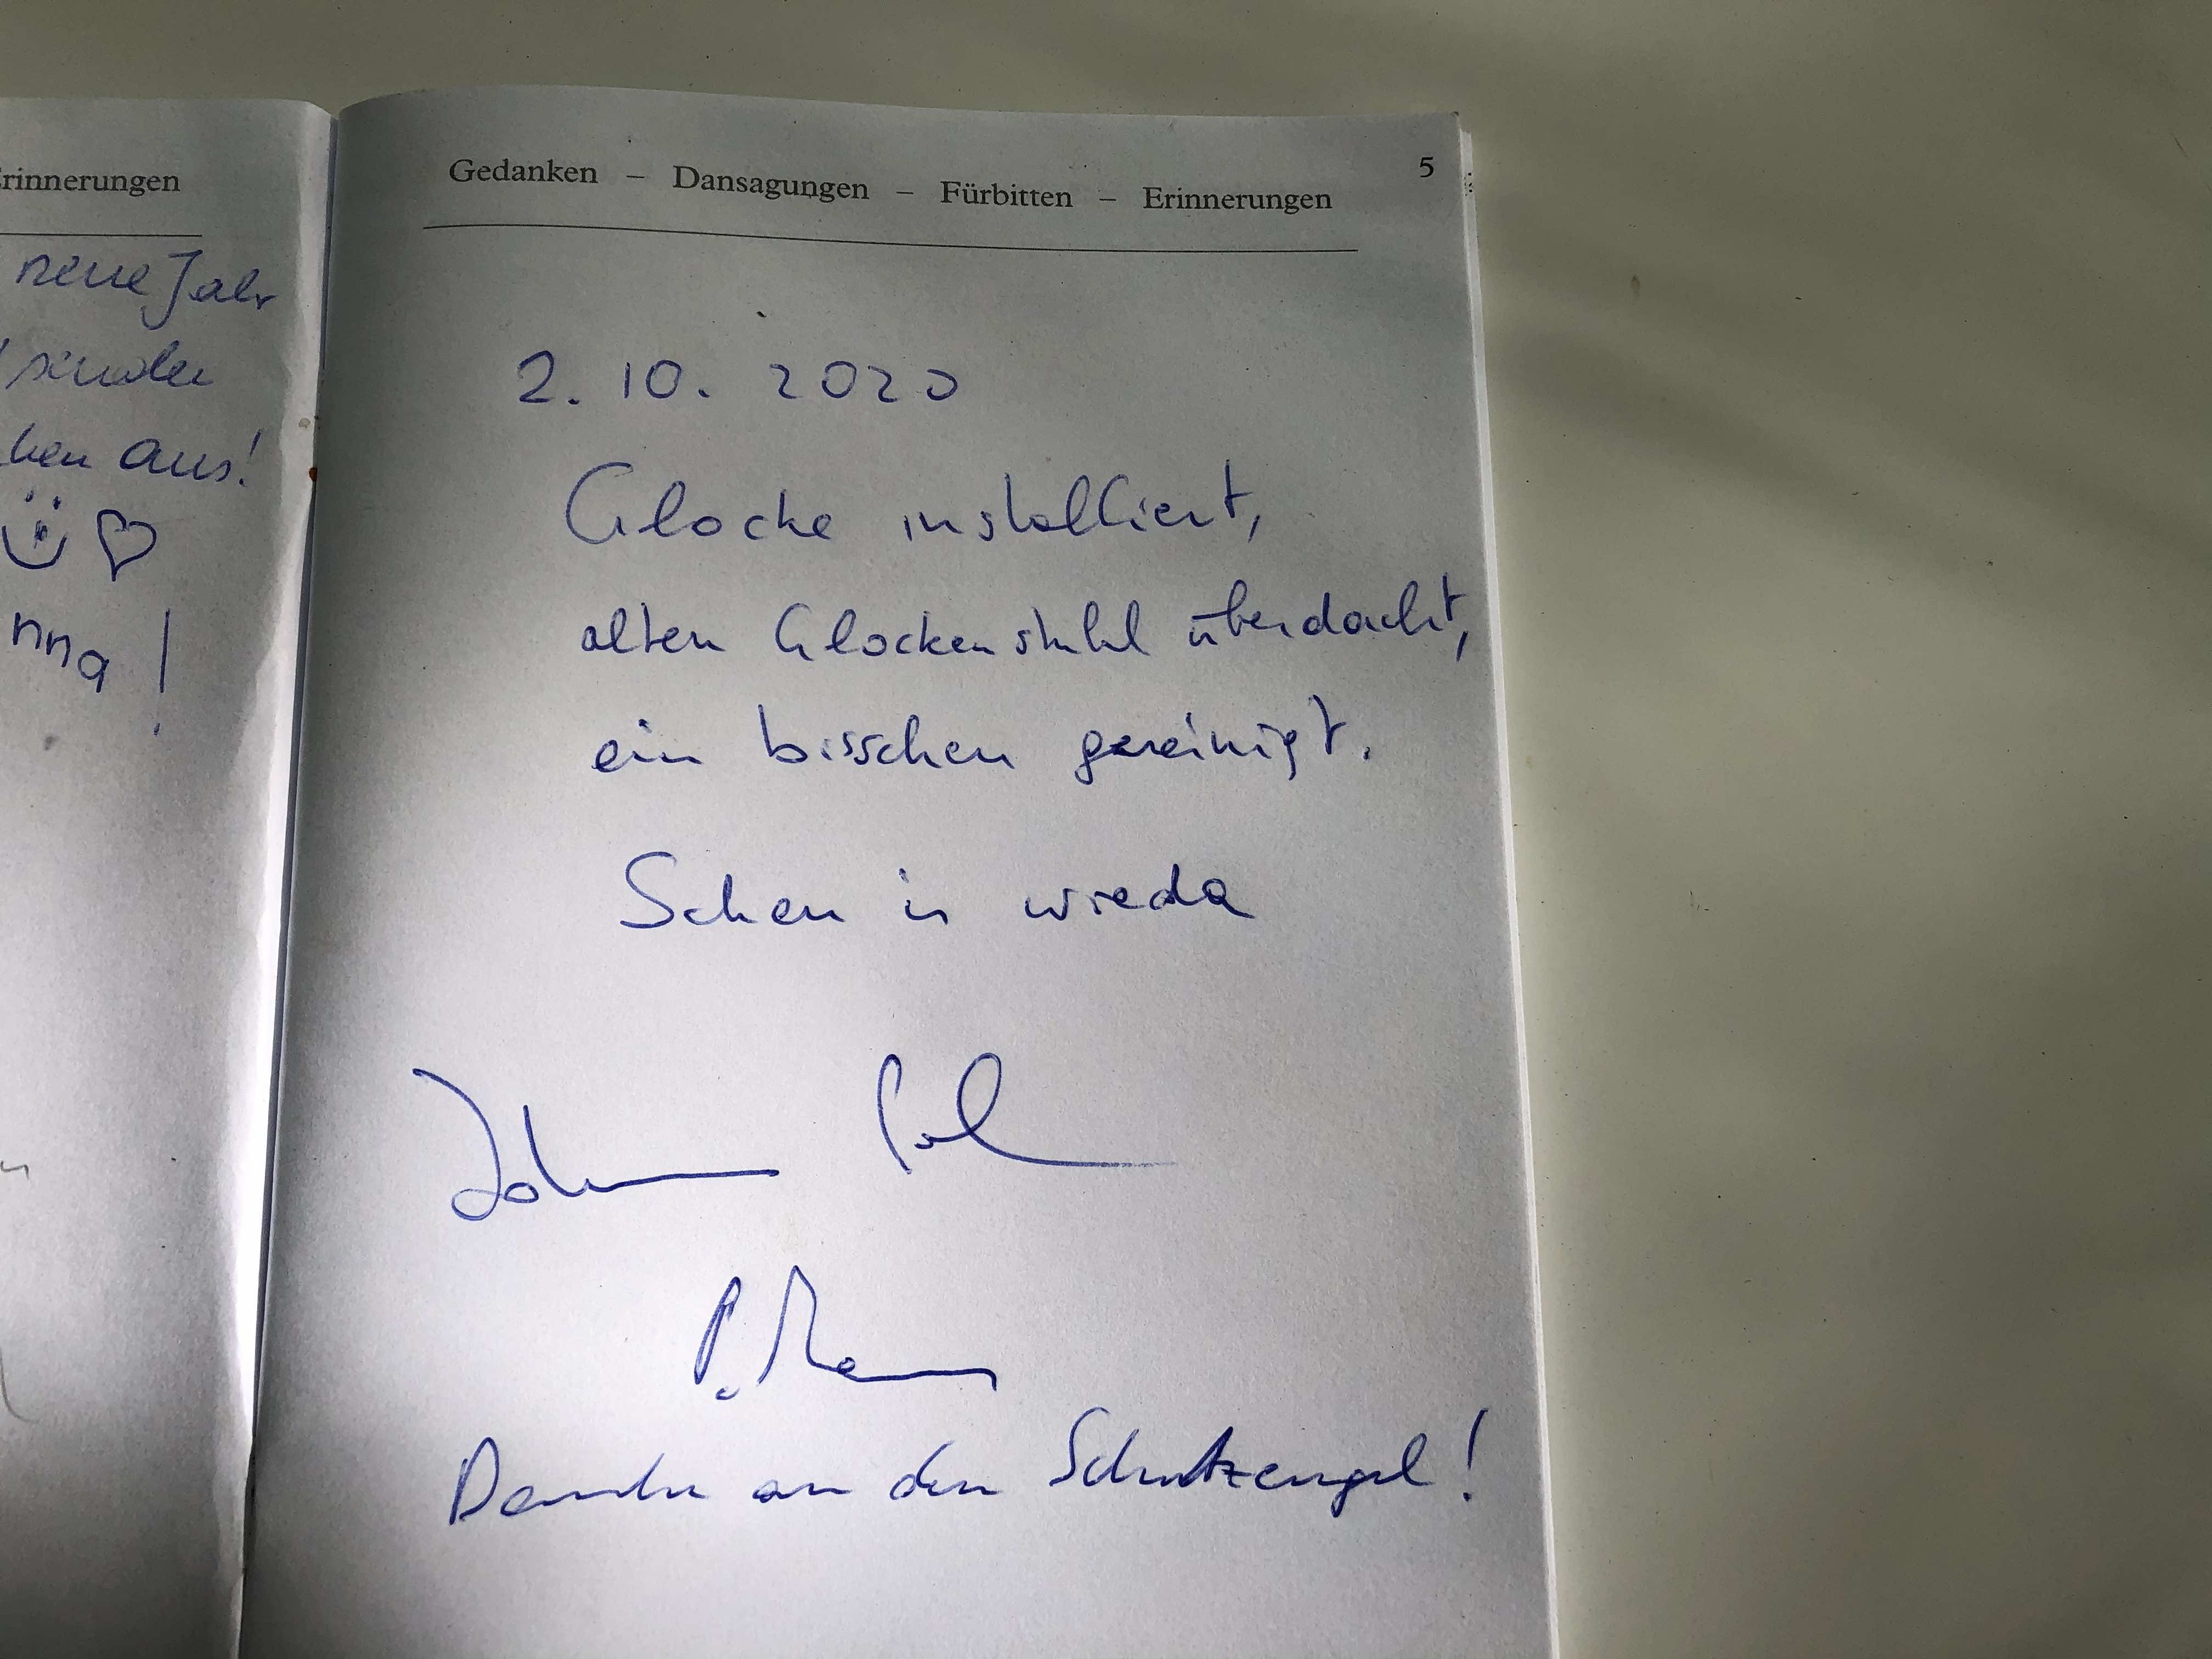 rinnerungen
neue Jahr
aus!
nna!
Gedanken – Dansagungen – Fürbitten – Erinnerungen 5
2. 10. 2020
Glocke installiert,
alten Glockenstuhl überdacht,
ein bisschen gereinigt.
Schen is wieda
Danke an den Schutzengel!